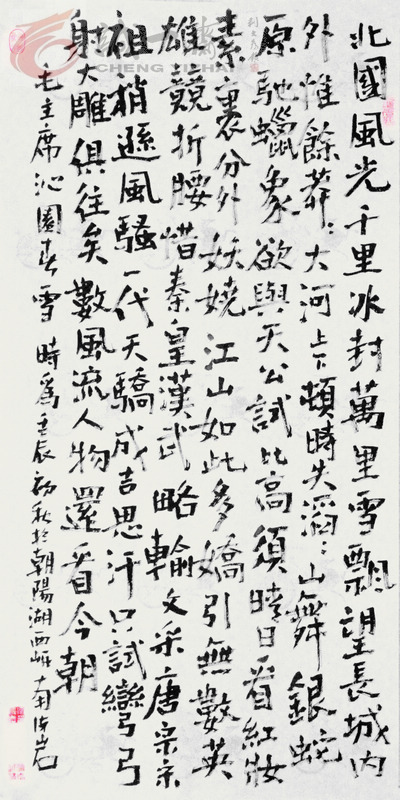 北國風光千里冰封萬里雪飄望長城内
外惟餘莽〻大河上下頓時失滔〻山舞銀蛇
原馳蠟象欲與天公試比高須晴日看紅妝
素裹分外妖嬈江山如此多嬌引無數英
雄競折腰惜秦皇漢武略輸文采唐宗宋
祖稍遜風騷一代天驕成吉思汗只試彎弓
射大雕俱往矣數風流人物還看今朝
毛主席沁園春雪時爲壬辰初秋於朝陽湖西畔